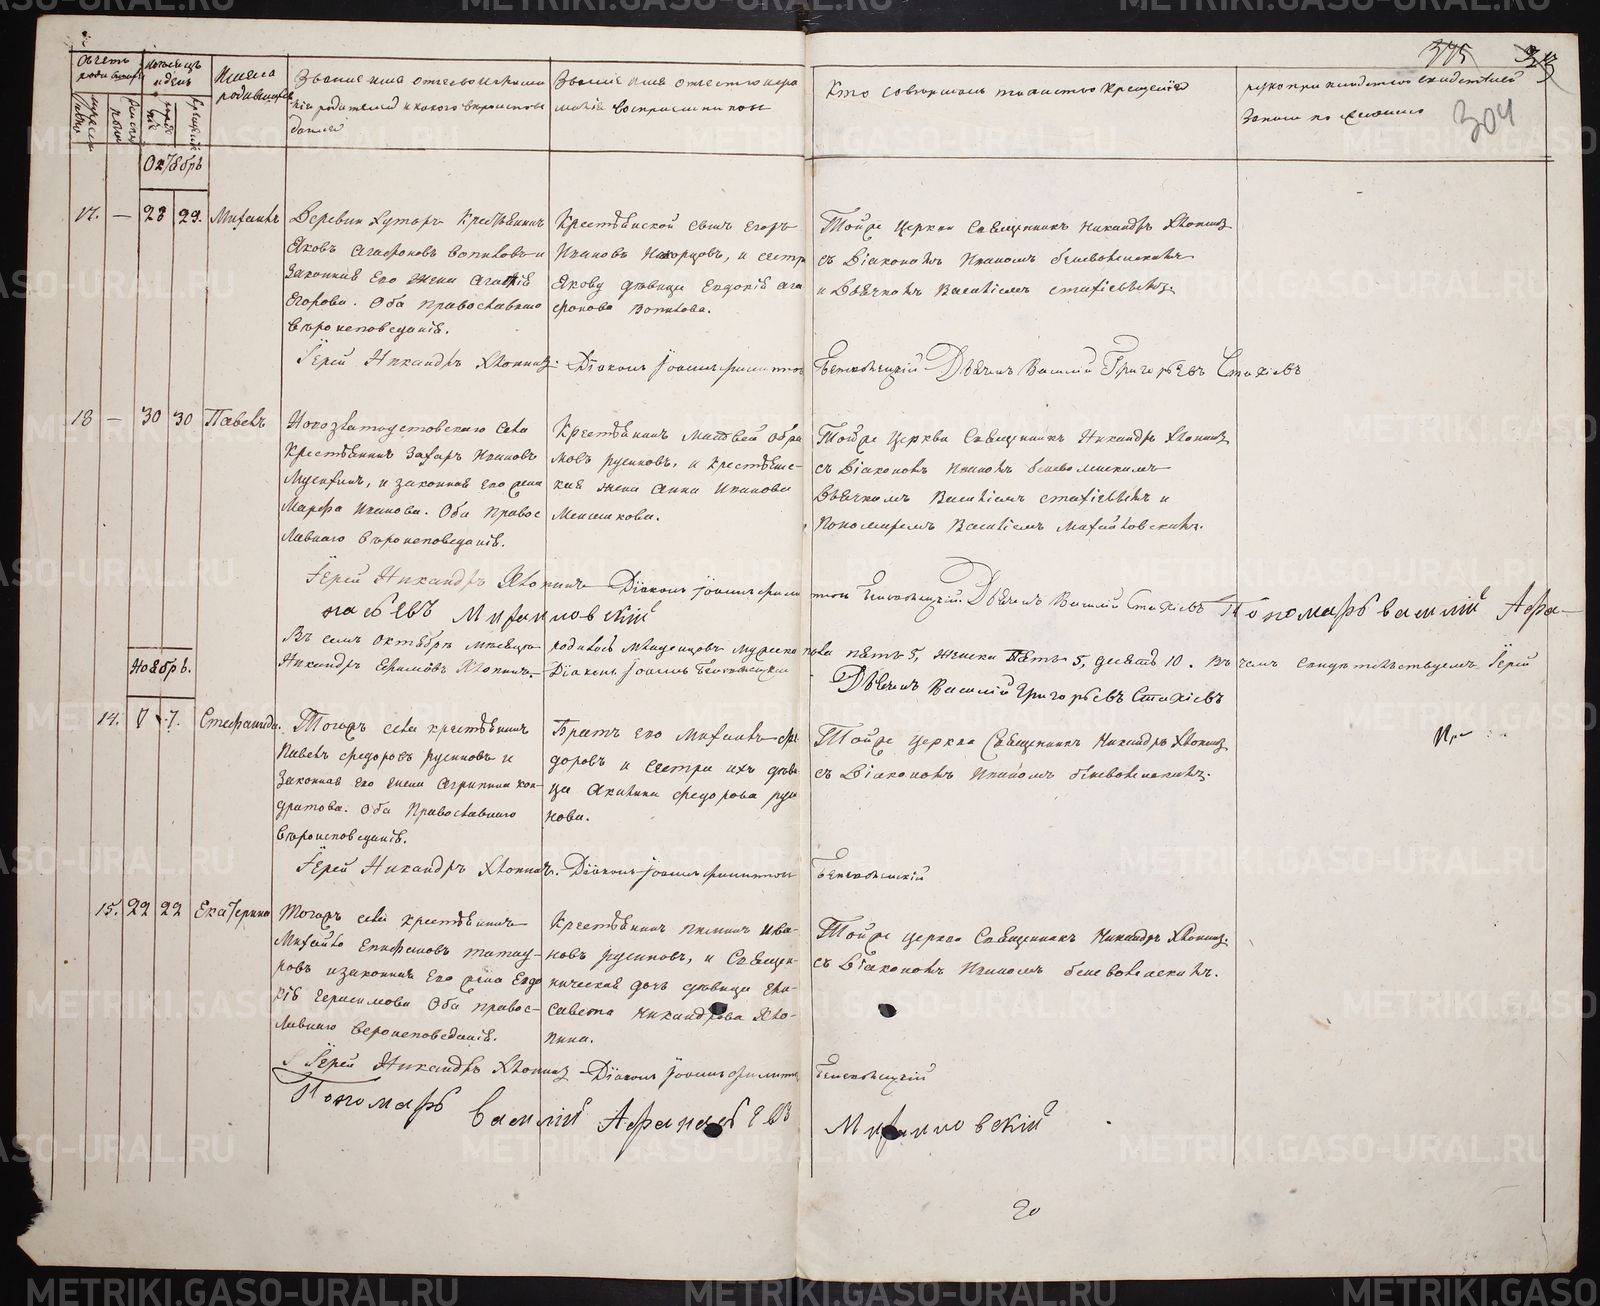 304
Счетъ родившихся
Мѣсяцъ и день
Имена родившихся
Званіе имя отчество и фамилія родителей и какого вѣроисповѣданія
Званіе имя отчество и фамилія воспріемниковъ
Кто совершалъ таинство крещенія
рукоприкладство свидѣтелей записи по желанію
Октябрь
17. — 28 29. Михаилъ
Деревни Хуторъ Крестьянинъ
Яковъ Агафоновъ и
законная его жена
Егорова. Оба Православнаго
вѣроисповѣданія.
Крестьянской сынъ Егоръ
Ивановъ и сестра
Якову дѣвица Евдокія Ага
фонова
Тойже церкви Священникъ Никандръ Хлопинъ
съ Діакономъ Иваномъ
и Дьячкомъ Василіемъ
Іерей Никандръ Хлопинъ. Діаконъ Іоаннъ Дьячекъ Василій Григорьевъ Стахіевъ
18 — 30 30 Павелъ
Новозлатоустовскаго села
Крестьянинъ Захаръ Ивановъ
и законная его жена
Марфа Иванова. Оба Правос
лавнаго вѣроисповѣданія.
Крестьянинъ Матвей Абра
мовъ Русиновъ, и крестьянс
кая жена Анна Иванова
Меншикова.
Тойже церкви Священникъ Никандръ Хлопинъ
съ Діакономъ Иваномъ
Дьячкомъ Василіемъ и
Пономаремъ Василіемъ Михайловскимъ.
Іерей Никандръ Хлопинъ Діаконъ Іоаннъ Дьячекъ Василій Стахіевъ Пономарь Василій Афа-
насьевъ Михайловскій
Въ семъ октябрѣ мѣсяцѣ родилось младенцовъ мужеска пола пять 5, женска пять 5, десять 10. Въ чемъ свидѣтельствуемъ Іерей
Никандръ Ефимовъ Хлопинъ. — Діаконъ Іоаннъ Дьячекъ Василій Григорьевъ Стахіевъ
Ноябрь.
14. 7 7. Стефанида.
Тогожъ села крестьянинъ
Павелъ Федоровъ Русиновъ и
законная его жена Агрипина Кон-
дратова. Оба Православнаго
вѣроисповѣданія.
Братъ его Михаилъ Фе
доровъ и сестра ихъ дѣви
ца Акилина Федорова Руси
нова.
Тойже церкви Священникъ Никандръ Хлопинъ
съ Діакономъ Иваномъ
Іерей Никандръ Хлопинъ. Діаконъ Іоаннъ
15. 22 22 Екатерина
Тогожъ села крестьянинъ
Михайло Епифановъ
и законная его жена Евдо
кія Герасимова Оба правос-
лавнаго вероисповеданія.
Крестьянинъ Пименъ Ива-
новъ Русиновъ, и Священ-
ническая дочь дѣвица Ели-
савета Никандрова Хло-
пина.
Тойже церкви Священникъ Никандръ Хлопинъ
съ Діакономъ Иваномъ
Іерей Никандръ Хлопинъ — Діаконъ Іоаннъ
Пономарь Василій Афанасьевъ Михайловскій
METRIKI.GASO-URAL.RU